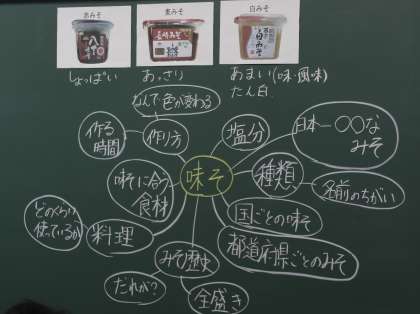 赤みそ
麦みそ
白みそ
しょっぱい
あっさり
あまい(味・風味)
たん白
なんで色が変わる
作る
時間
作り方
塩分
日本一〇〇な
みそ
味そに合う
食材
味そ
種類
名前のちがい
どのくらい
使っているか
料理
国ごとの味そ
都道府県ごとのみそ
みそ歴史
だれが?
全盛き